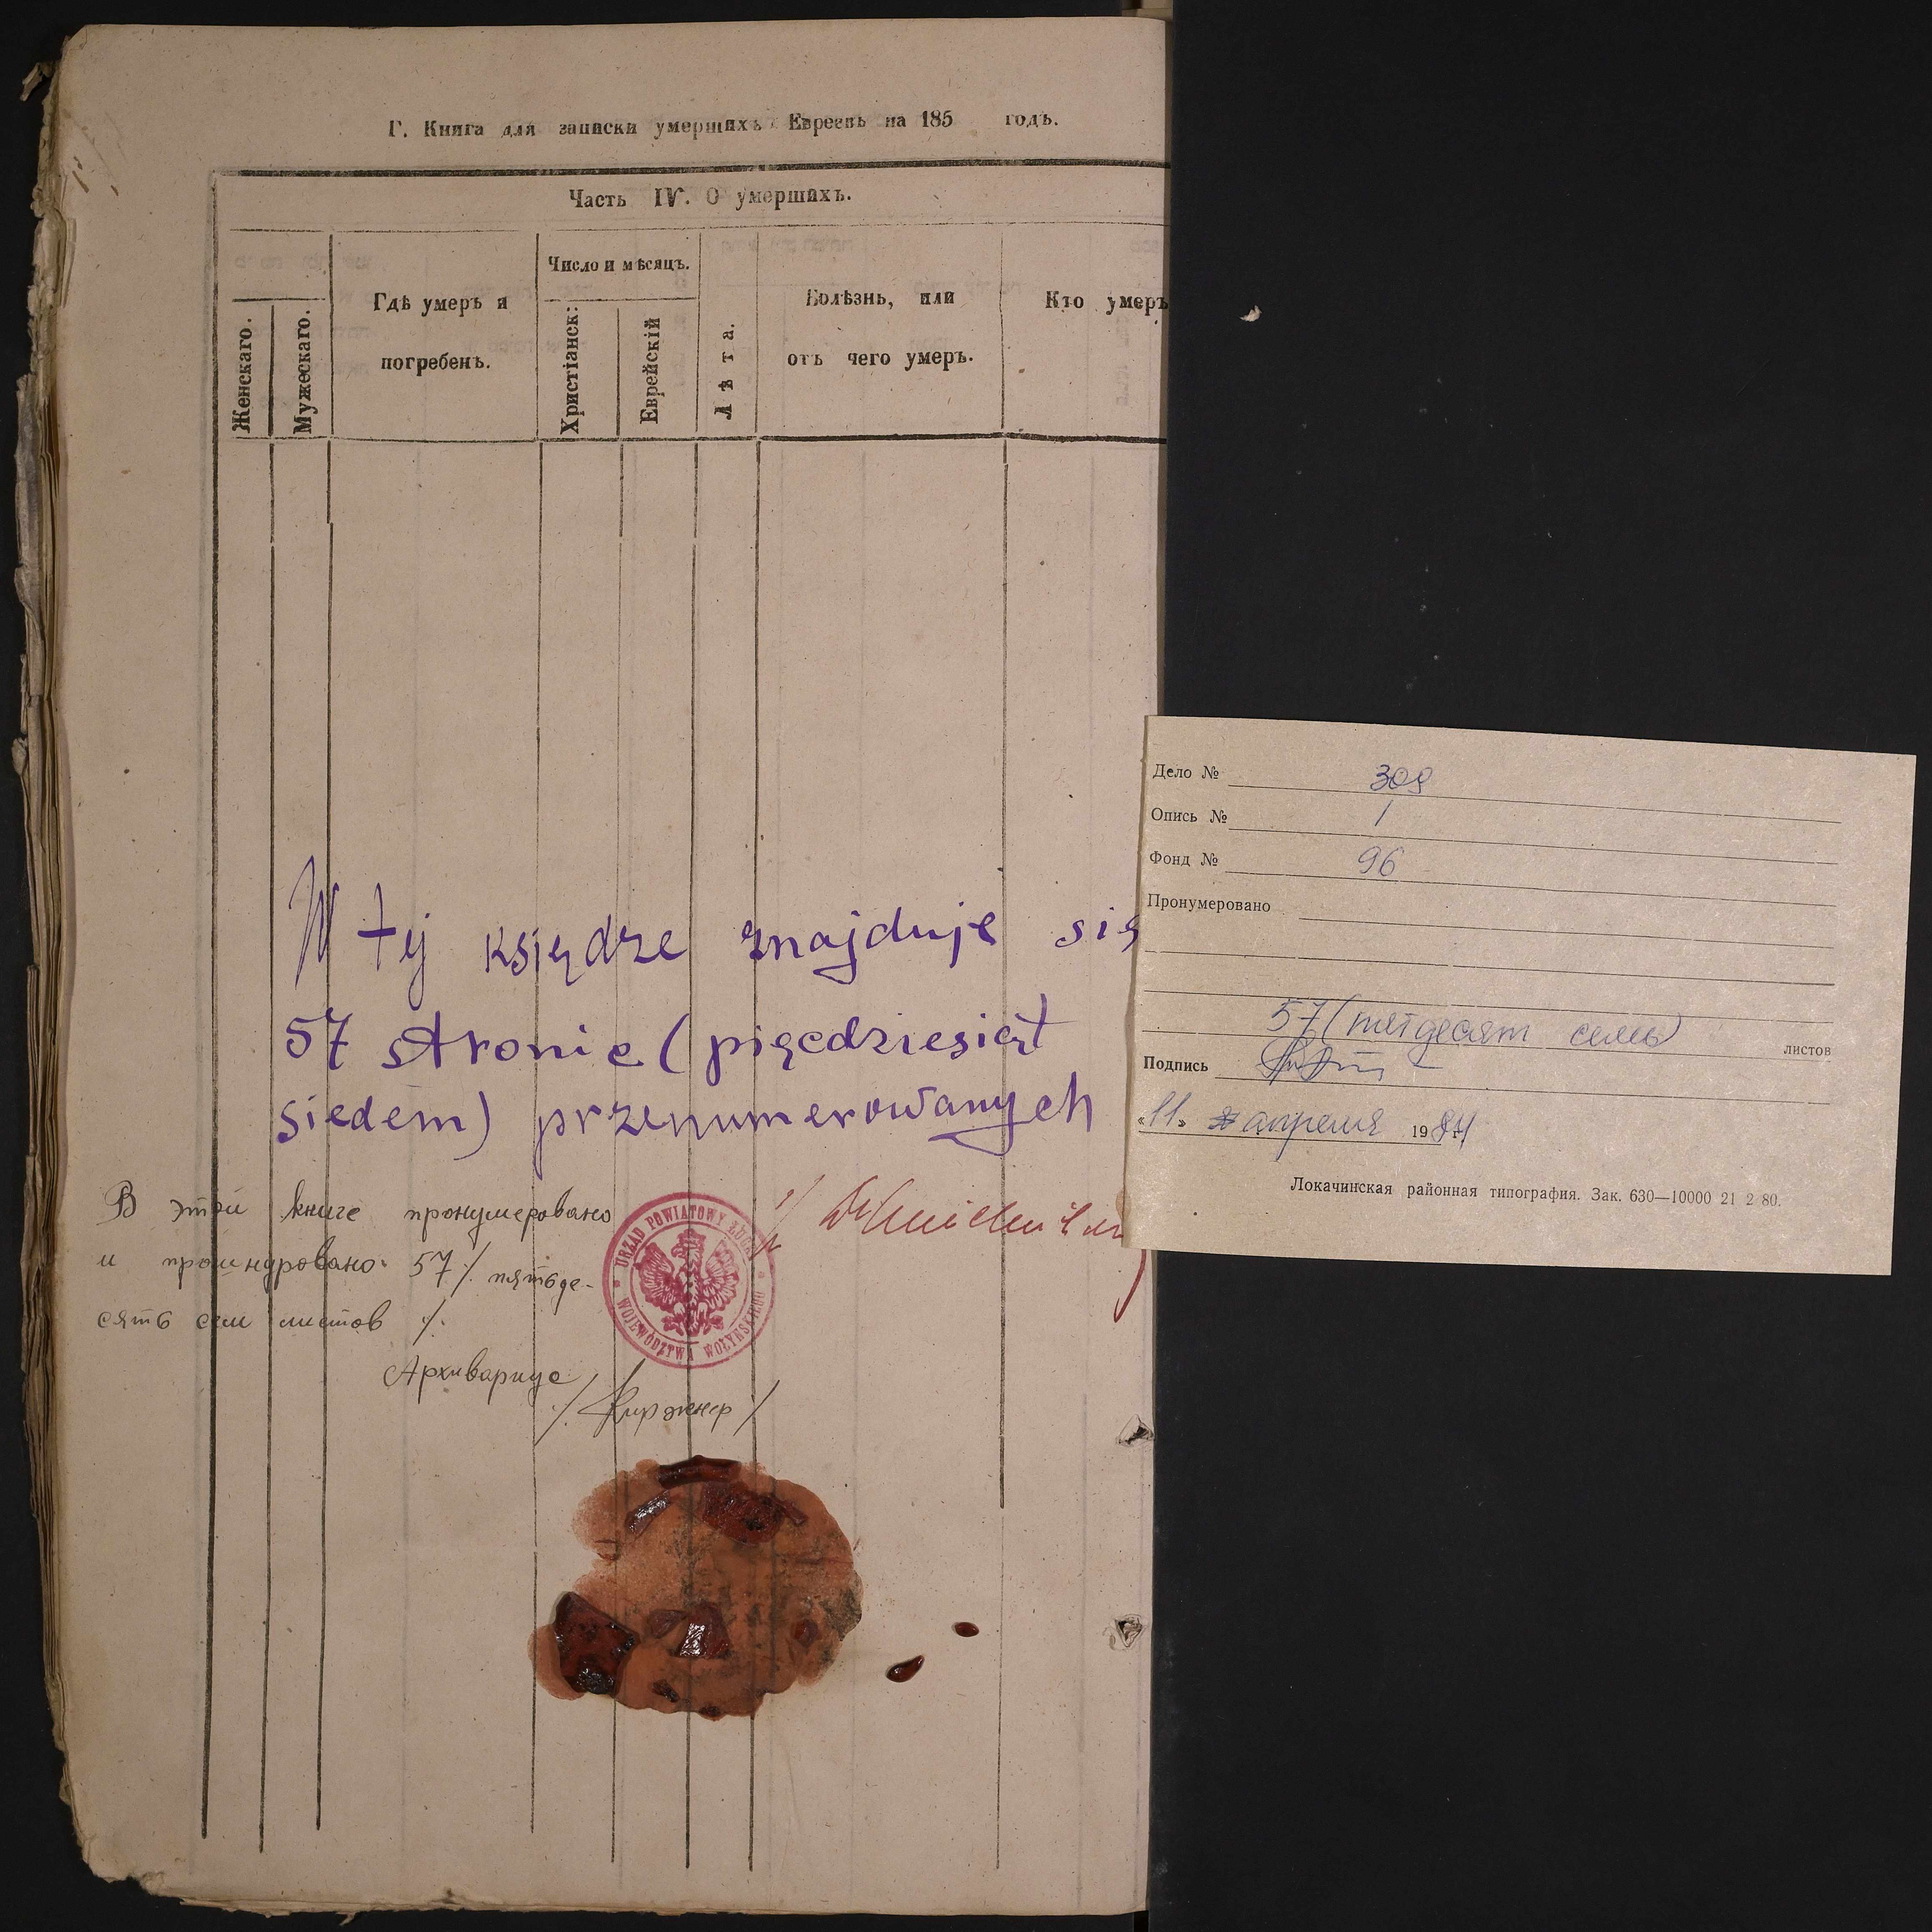 Г. Книга для записки умершихъ Евреевъ на 185 годъ.
Часть IV. О умершихъ.
Женскаго.
Мужескаго.
Гдѣ умеръ и
погребенъ.
Число и мѣсяцъ.
Христіанск:
Еврейскій
Лѣта.
Болѣзнь, или
отъ чего умеръ.
Кто умеръ
W tej księdze znajduje się
57 stronic (pięcdziesiąt
siedem) przenumerowanych
В этой книге пронумеровано
и прошнуровано 57 %. пятьде-
сять сем листов %.
Архивариус
URZĄD POWIATOWY
WOJEWÓDZTWA WOŁYŃSKIEGO
Дело № 309
Опись № 1
Фонд № 96
Пронумеровано
57 (пятдесят семь) листов
Подпись
«11» апреля 1984
Локачинская районная типография. Зак. 630—10000 21 2 80.